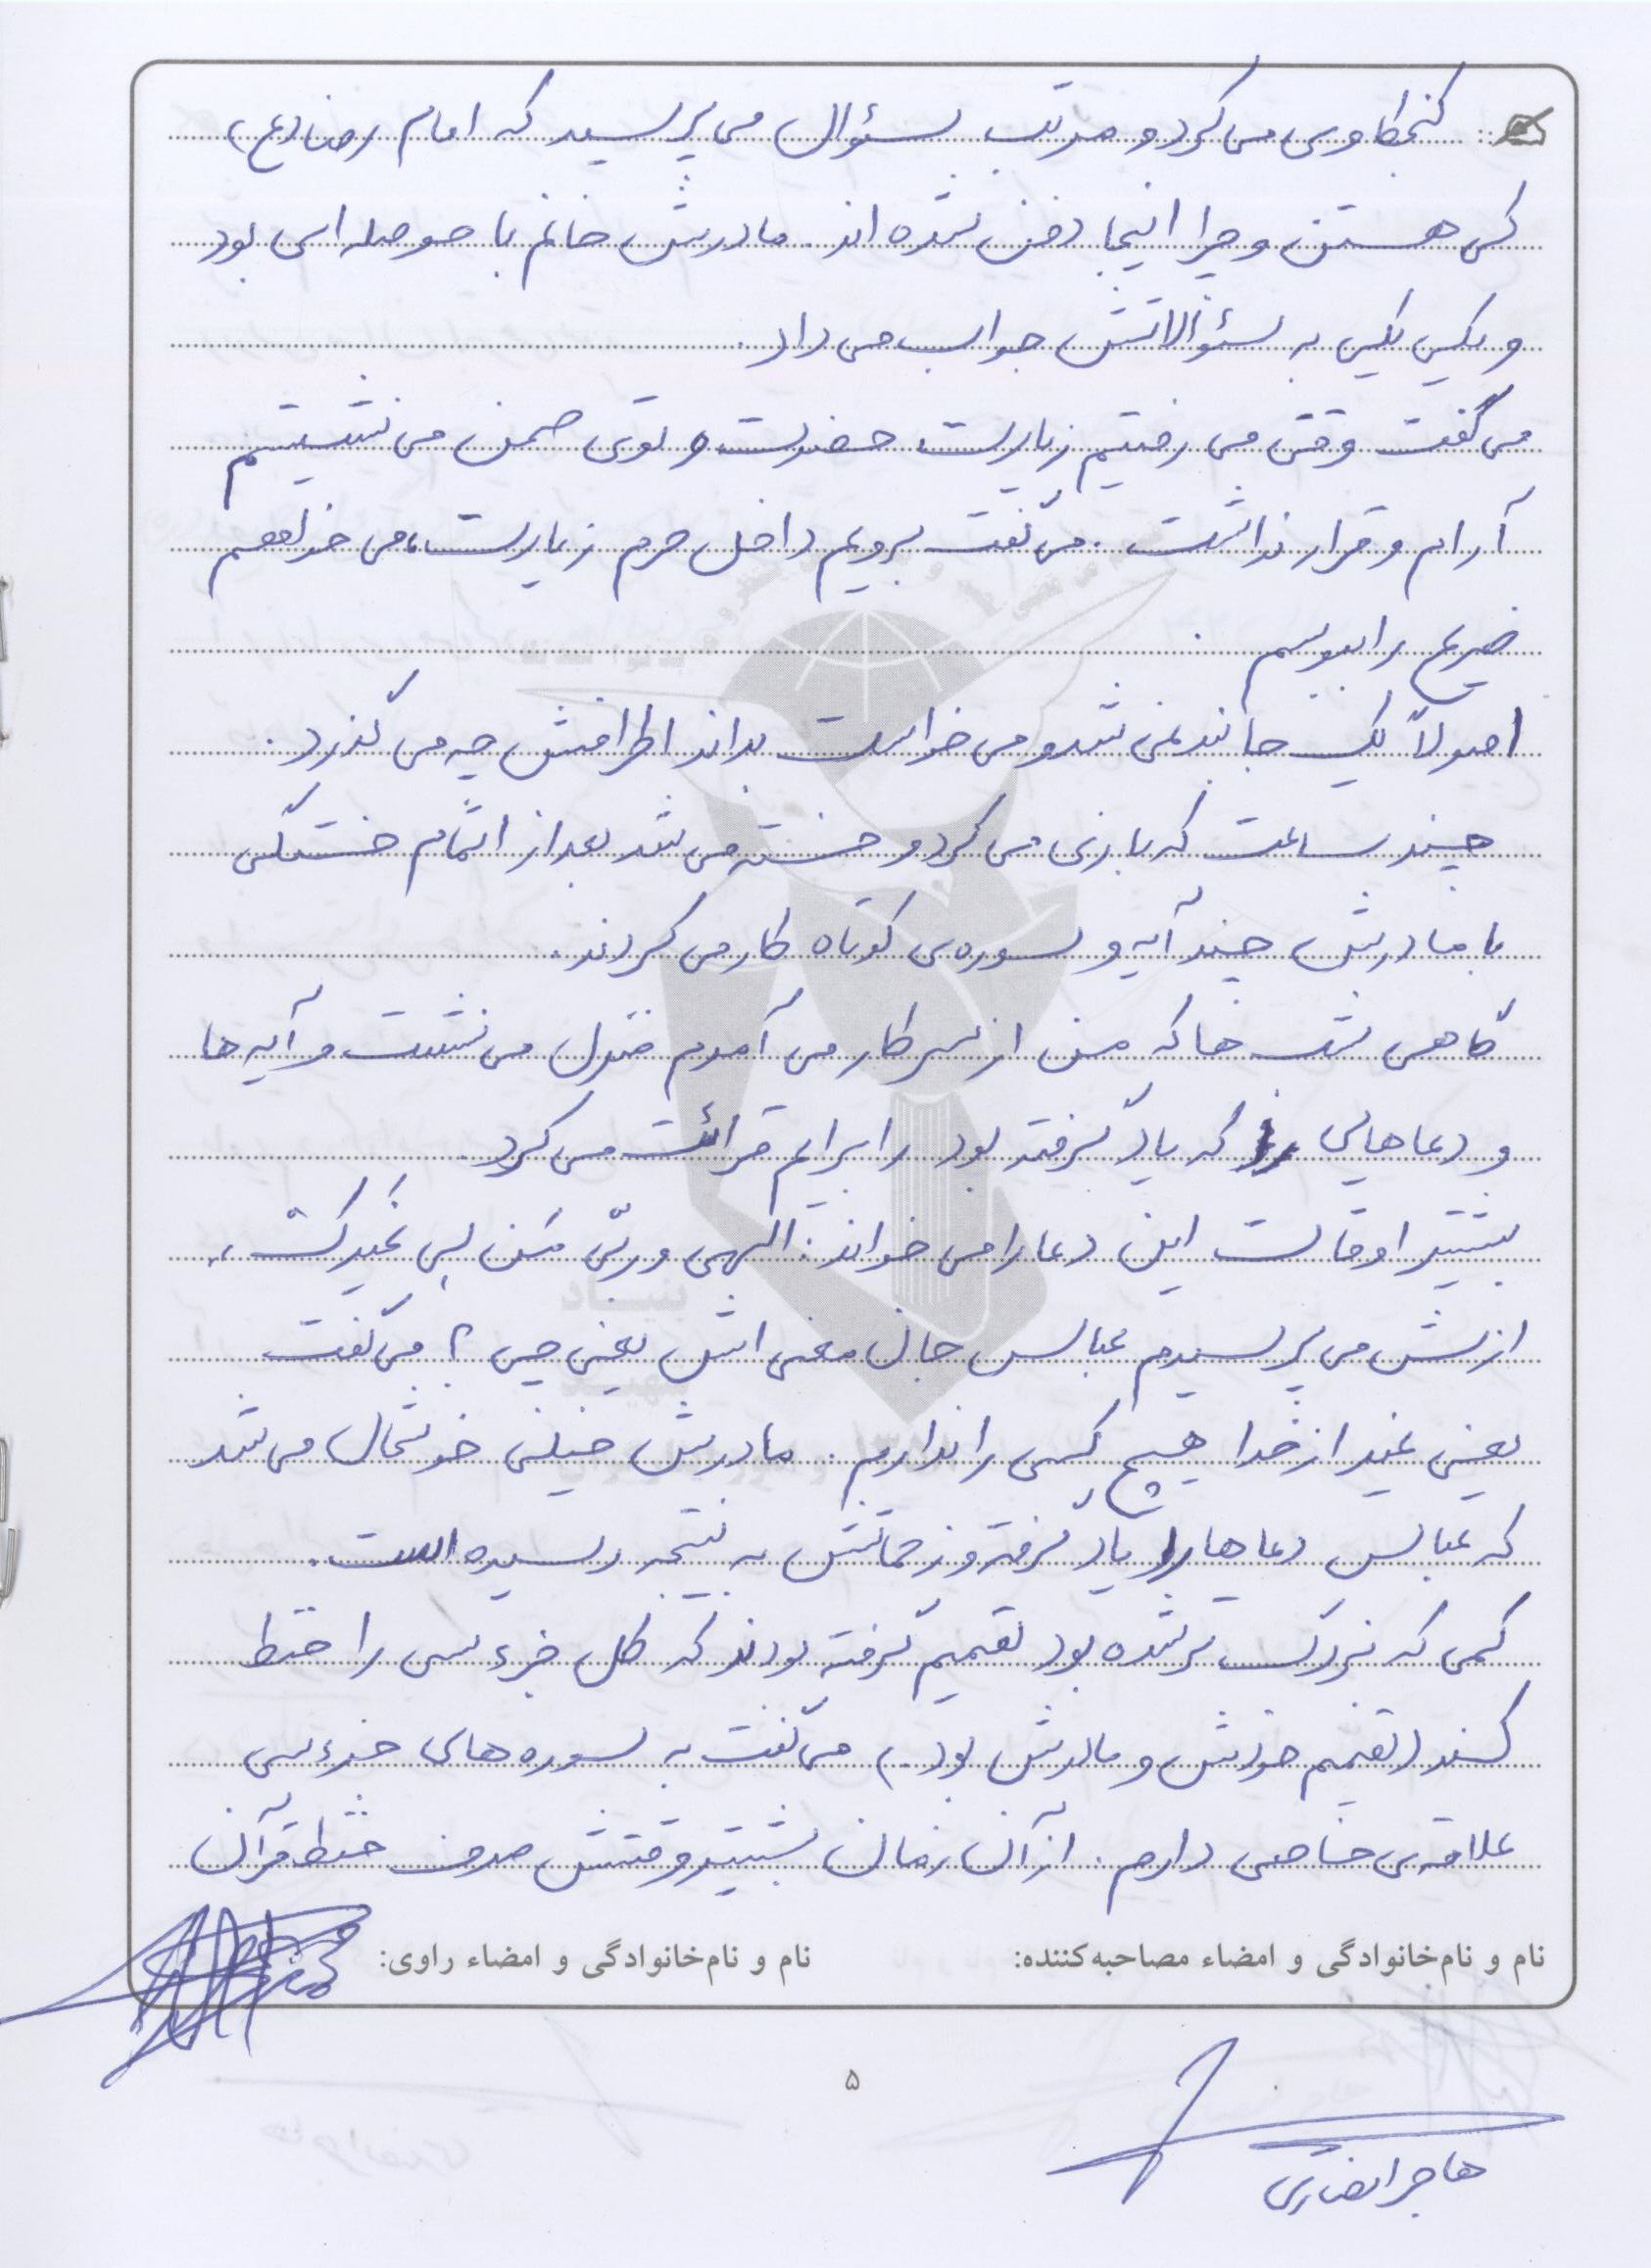 کنجکاوی می کرد و مرتب سئوال می پرسید که امام رضا (ع)
کی هستن و چرا اینجا دفن شده اند. مادرش خانم با حوصله ای بود
و یکی یکی به سئوالاتش جواب می داد.
می گفت وقتی می رفتیم زیارت حضرت و توی صحن می نشستیم
آرام و قرار نداشت. می گفت برویم داخل حرم زیارت، می خواهم
ضریح را ببوسم.
اصولاً یک جا بند نمی شد و می خواست بداند اطرافش چه می گذرد.
چند ساعت که بازی می کرد و خسته می شد بعد از اتمام خستگی
با مادرش چند آیه و سوره ی کوتاه کار می کردند.
گاهی شب ها که من از سر کار می آمدم منزل می نشست و آیه ها
و دعاهایی که یاد گرفته بود را برایم قرائت می کرد.
بیشتر اوقات این دعا را می خواند: الهی و ربّی مَن لی غَیرکْ،
ازش می پرسیدم عباس جان معنی اش یعنی چی؟ می گفت
یعنی غیر از خدا هیچ کسی را ندارم. مادرش خیلی خوشحال می شد
که عباس دعاها را یاد گرفته و زحماتش به نتیجه رسیده است.
کمی که بزرگ تر شده بود تصمیم گرفته بودند که کل جزء سی را حفظ
کنند (تصمیم خودش و مادرش بود.) می گفت به سوره های جزء سی
علاقه ی خاصی دارم. از آن زمان بیشتر وقتش صرف حفظ قرآن
نام و نام‌خانوادگی و امضاء مصاحبه‌کننده: نام و نام‌خانوادگی و امضاء راوی:
۵
هاجر انصاری
بنیاد
شهید